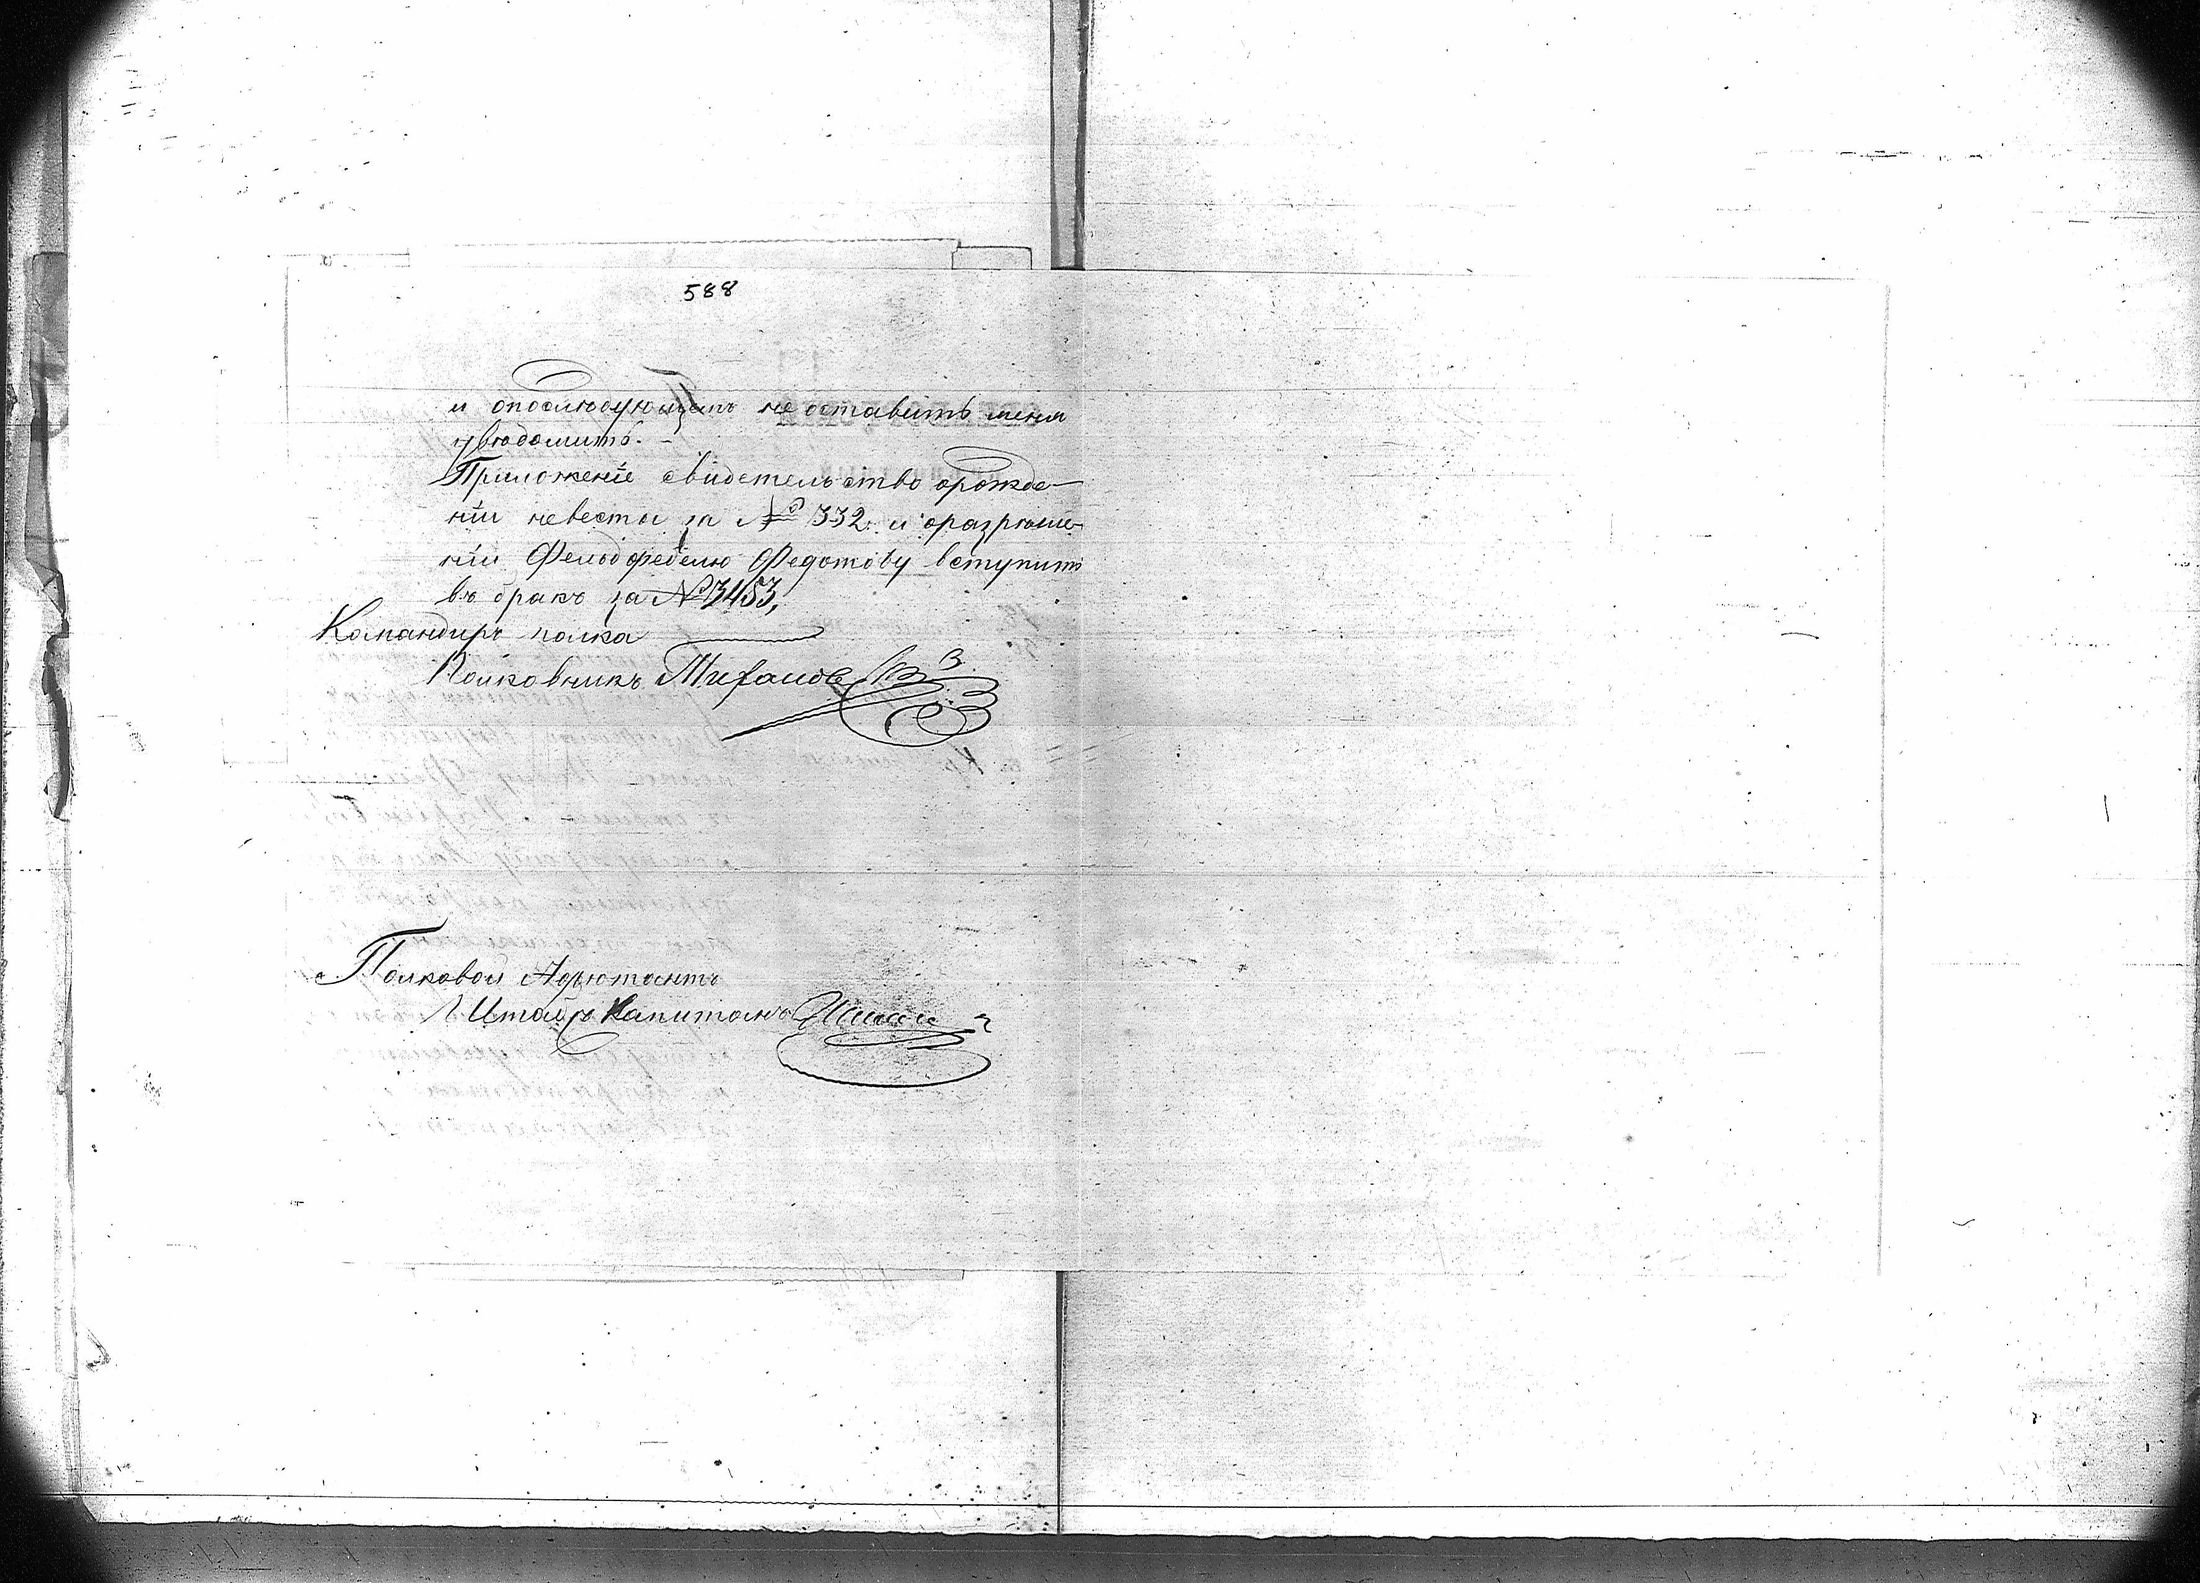 588
и опослѣдующемъ не оставить меня
увѣдомить. —
Приложеніе свидетельство орожде-
ніи невесты за № 332. и оразрѣше-
ніи Фельдфебелю Федотову вступить
въ бракъ за № 3453,
Командиръ полка
Полковникъ
Полковой Адъютантъ
Штабсъ Капитанъ